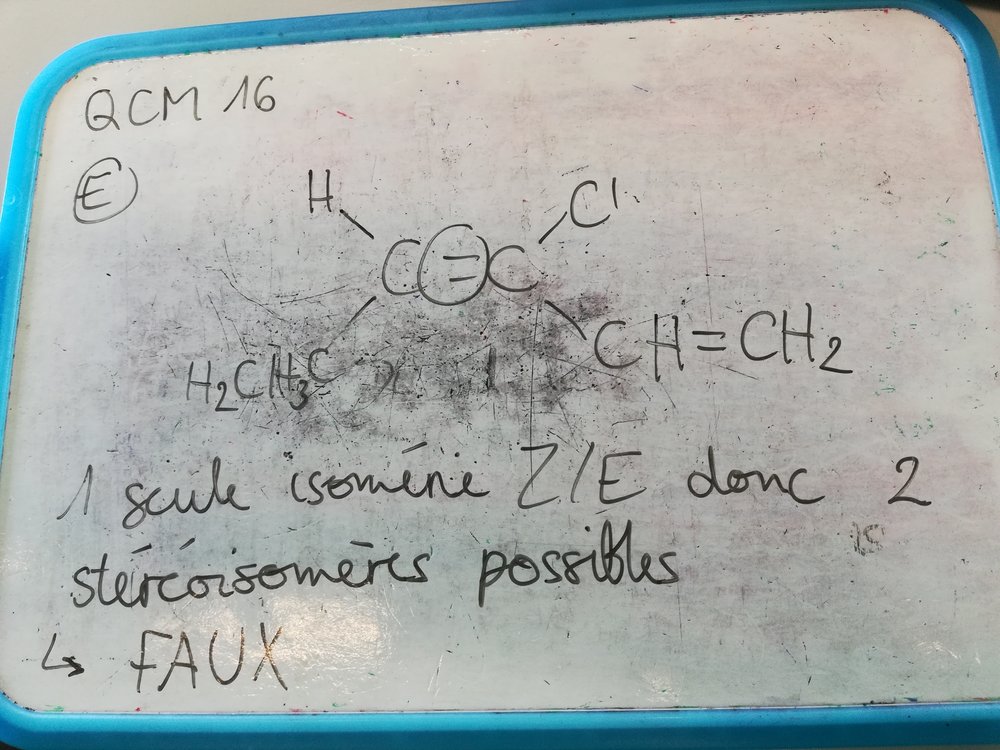 QCM 16
E
H
Cl
C=C
H2CH3C
CH=CH2
1 seule isomérie Z/E donc 2
stéréoisomères possibles
↳ FAUX